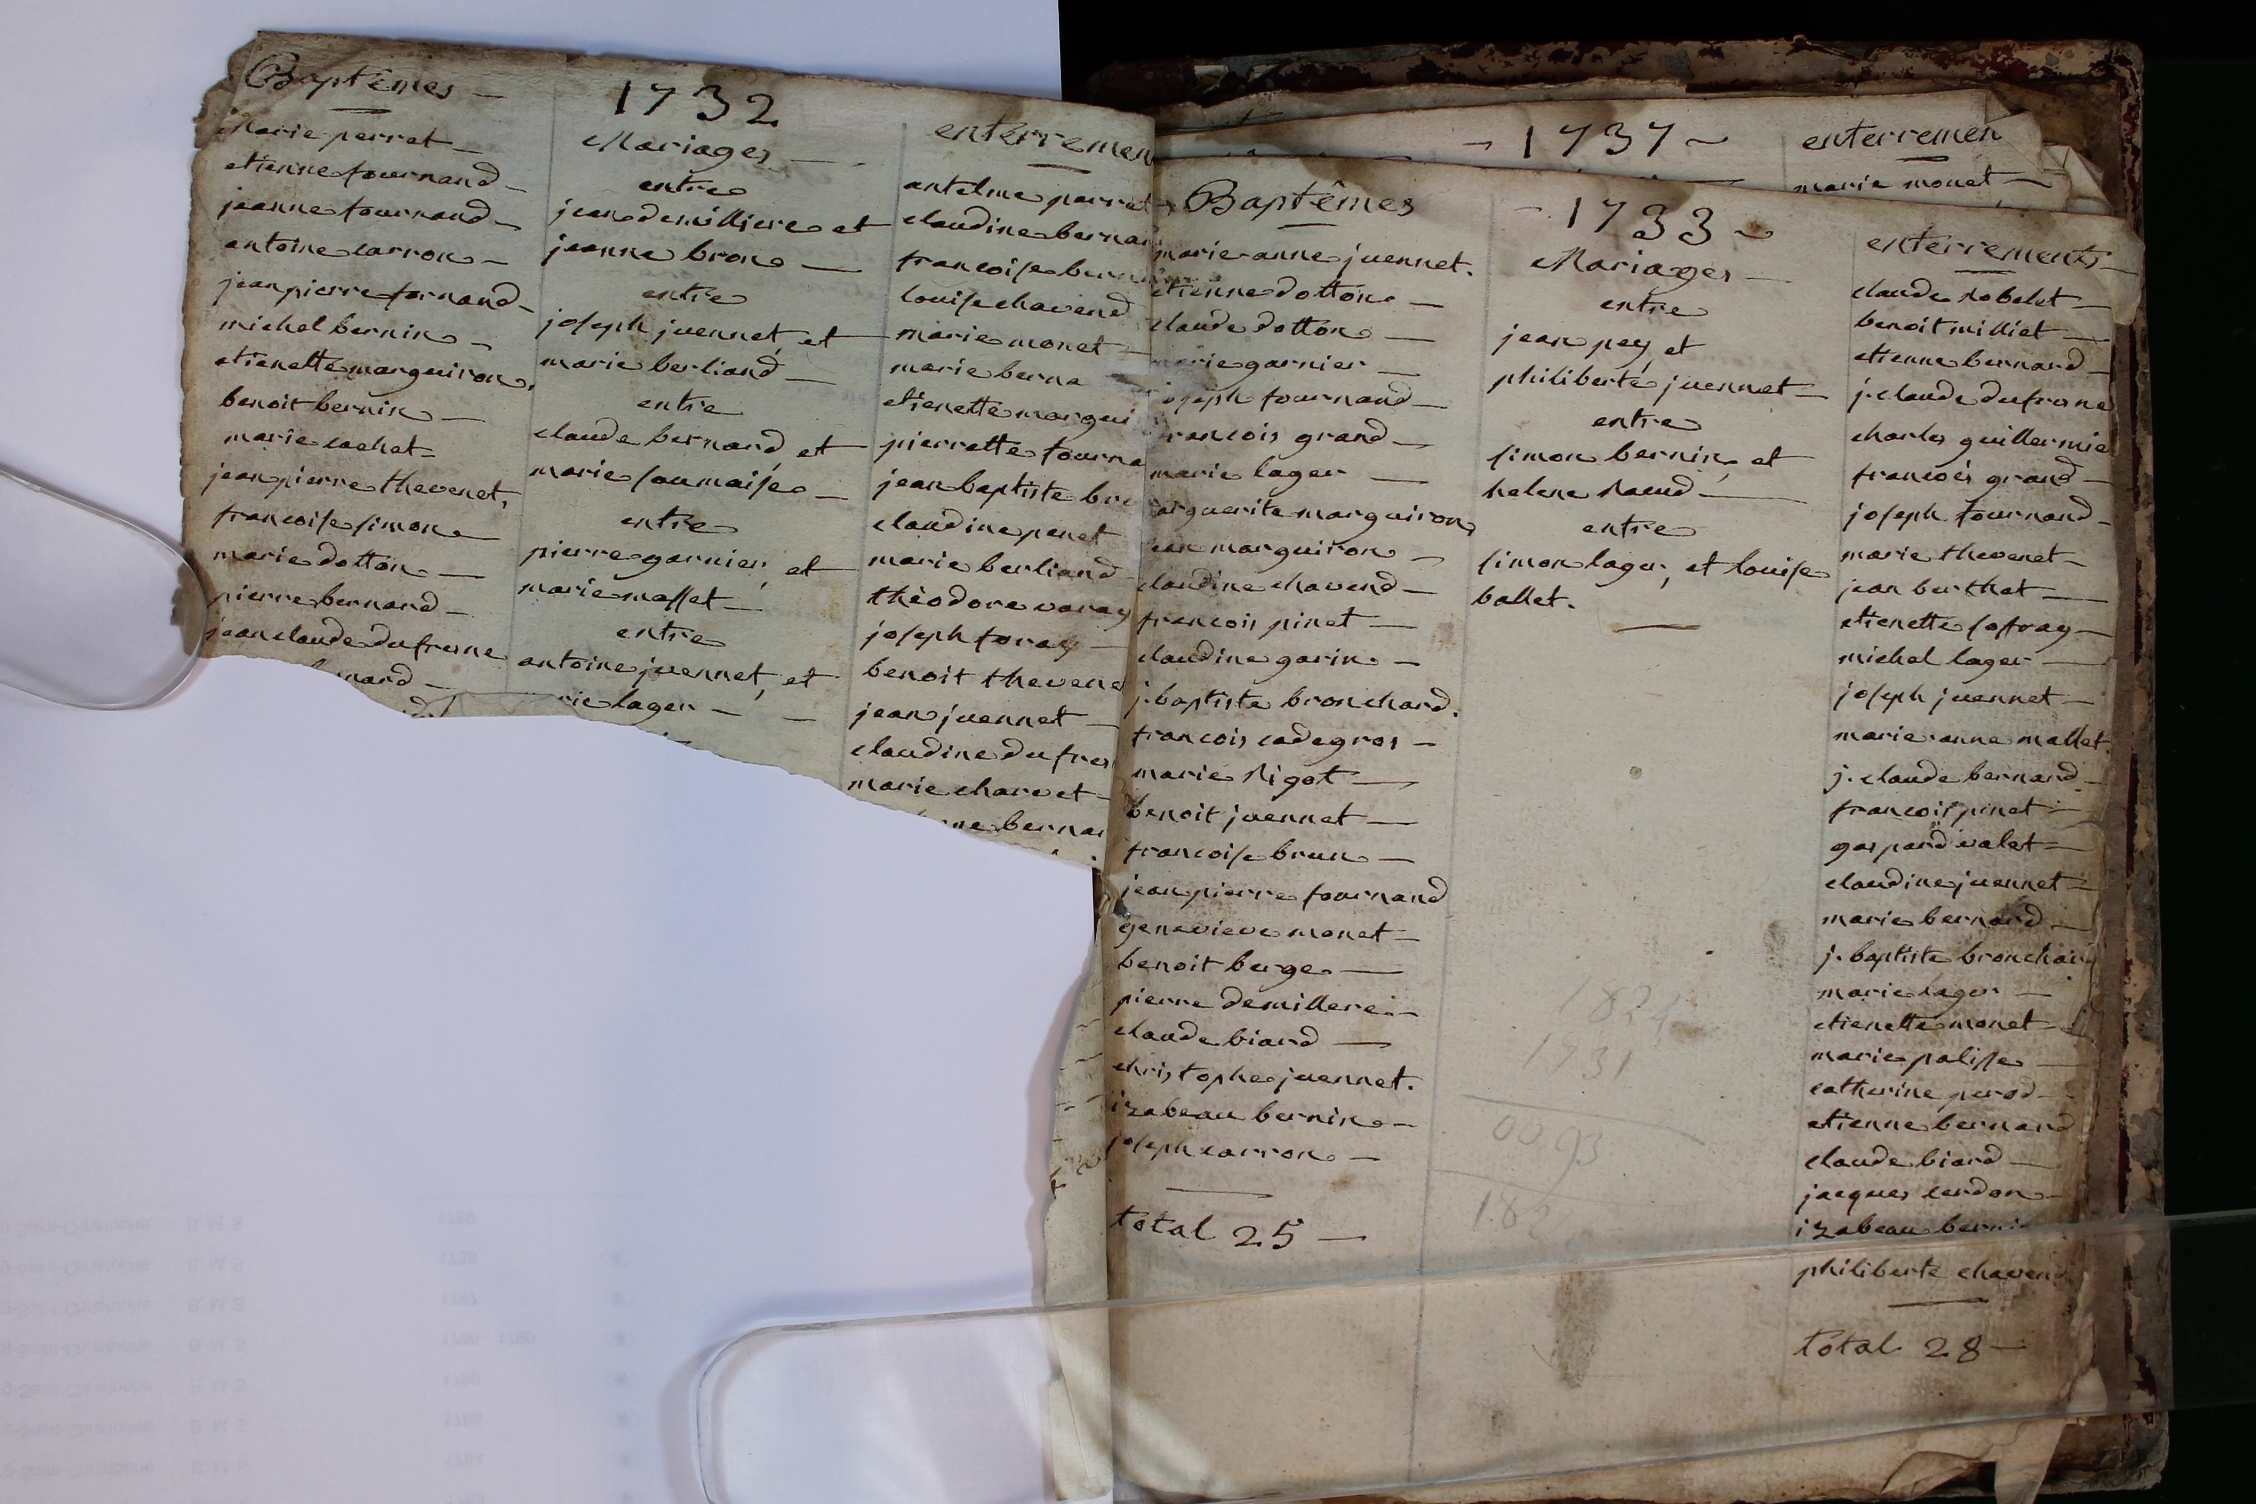 Baptêmes
Marie perret
etienne fournand
jeanne fournand
antoine carron
jean pierre fornand
michel bernin
etienette marguiron
benoit bernin
marie cachet
jean pierre thevenet
francoise simon
marie dotton
pierre bernard
jean claude dufresne
1732
Mariages
entre
jean demilliere et
jeanne bron
entre
joseph juennet et
marie berliand
entre
claude bernard et
marie soumaise
entre
pierre garnier, et
marie masset
entre
antoine juennet, et
lager
enterremen
antelme perret
claudine berna
francoise
louise chavend
marie monet
marie berna
etienette margui
pierrette fourna
jean baptiste
claudine penet
marie berliand
thèodore varay
joseph foray
benoit thevene
jean juennet
claudine dufres
marie charvet
berna
1737
enterremen
marie monet
Baptêmes
marie anne juennet.
etienne dotton
claude dotton
marie garnier
joseph fournand
francois grand
marie lager
marguerite marguiron
jean marguiron
claudine chavend
francois pinet
claudine garin
j. baptiste bronchard.
francois cadegros
marie Rigot
benoit juennet
francoise brun
jean pierre fournand
genevieve monet
benoit berge
pierre demillere
claude biard
christophe juennet.
izabeau bernin
joseph carron
total 25
1733
Mariages
entre
jean pey et
philiberte juennet
entre
simon bernin et
helene Raeud
entre
simon lager, et louise
ballet.
1824
1731
0093
182
enterrements
claude Robelet
benoit milliet
etienne bernard
j. claude dufresne
charles guillermie
francois grand
joseph fournand
marie thevenet
jean berthet
etienette soffray
michel lager
joseph juennet
marie anne mallet
j. claude bernard
francois pinet
gaspard valet
claudine juennet
marie bernard
j. baptiste bronchar
marie lager
etienette monet
marie palisse
catherine perod
etienne bernard
claude biard
jacques cerdon
izabeau berni
philiberte chavend
total 28